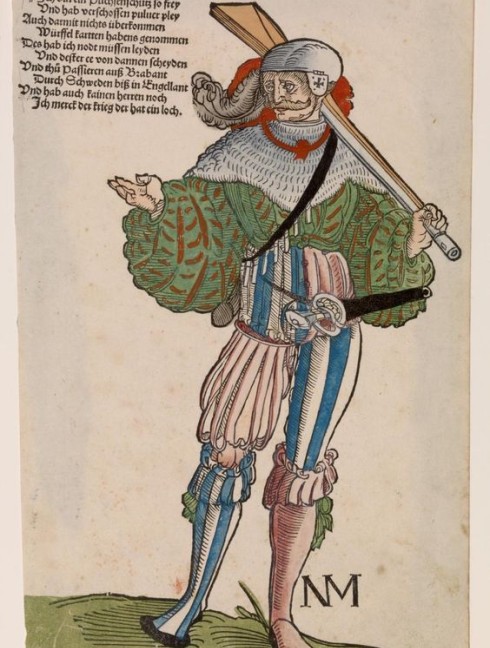 bin ein Püchsenschütz so frey
Und hab verschossen puluer pley
Auch darmit nichts überkommen
Würffel kartten habens genommen
Des hab ich nodt müssen leyden
Und dester ee von dannen scheyden
Und thů Passieren auß Brabant
Durch Schweden biß in Engellant
Und hab auch kainen herren noch
Ich merck der krieg der hat ein loch.
NM